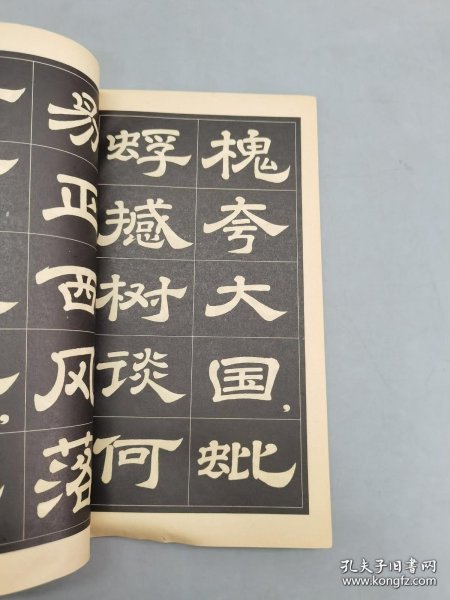 槐夸大国，蚍
蜉撼树谈何
易正西风落
孔夫子旧书网
www.kongfz.com